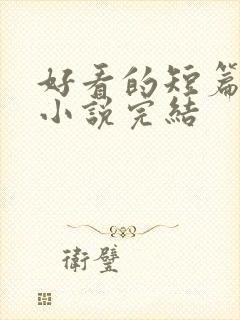 好看的短篇
小说完结
衛璧